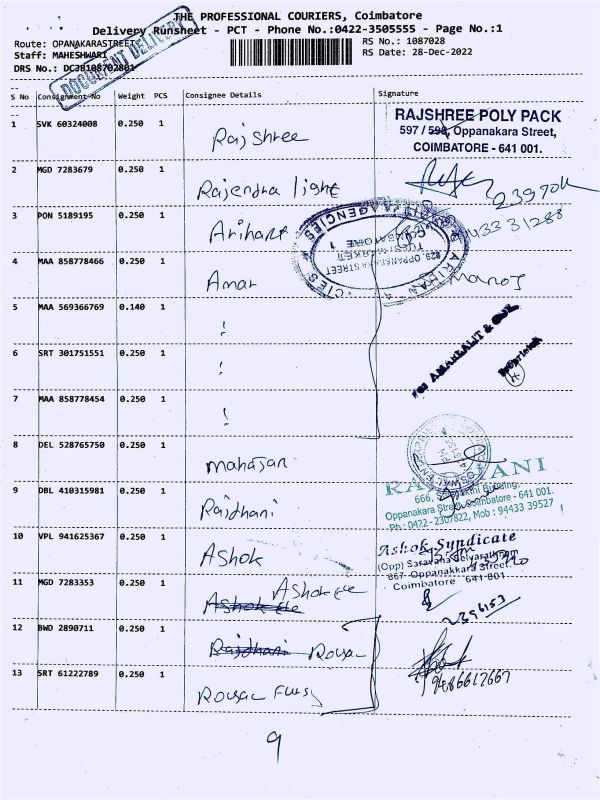 THE PROFESSIONAL COURIERS, Coimbatore
Delivery Runsheet - PCT - Phone No.:0422-3505555 - Page No.:1
Route: OPANAKARASTREET
RS No.: 1087028
Staff: MAHESHWARI
RS Date: 28-Dec-2022
DRS No.: DCJB108702801
DOCUMENT DELIVERY
S No Consignment No Weight PCS Consignee Details Signature
1 SVK 60324008 0.250 1 Rajshree
RAJSHREE POLY PACK
597 / 598, Oppanakara Street,
COIMBATORE - 641 001.
2 MGD 7283679 0.250 1 Rajendra light
3 PON 5189195 0.250 1 Arihant
829, OPPANAKARA STREET
4 MAA 858778466 0.250 1 Amar
Manoj
5 MAA 569366769 0.140 1 !
6 SRT 301751551 0.250 1 !
Proprietor
7 MAA 858778454 0.250 1 !
8 DEL 528765750 0.250 1 mahajan
9 DBL 410315981 0.250 1 Rajdhani
Oppanakara Street, Coimbatore - 641 001.
Ph : 0422 - 2307622, Mob : 94433 39527
10 VPL 941625367 0.250 1 Ashok
Ashok Syndicate
(Opp)
667- Oppanakkara Street,
Coimbatore 641 001
11 MGD 7283353 0.250 1
12 BWD 2890711 0.250 1 Rajdhani
13 SRT 61222789 0.250 1
9486617667
9